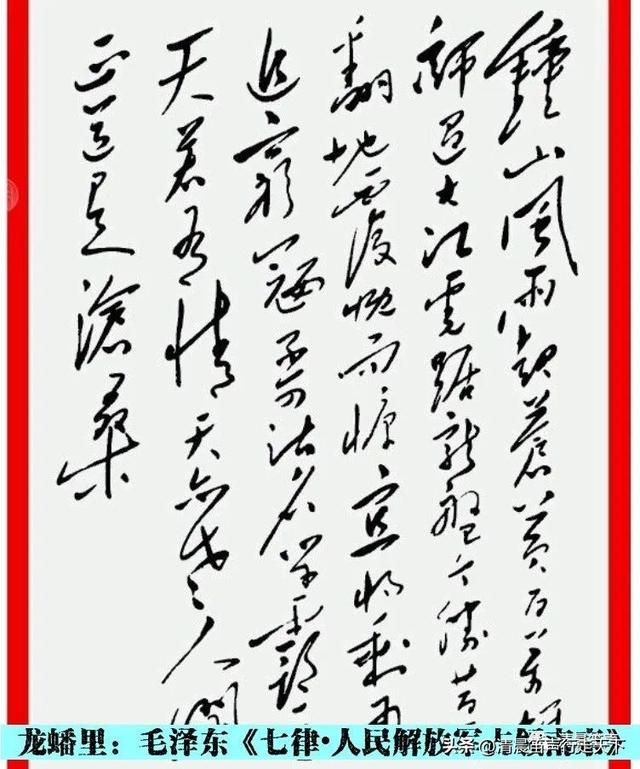 鍾山風雨起蒼黃百萬雄
師過大江虎踞龍盤今勝昔
翻地覆慨而慷宜將剩勇
追窮寇不可沽名學霸
天若有情天亦老人間
正道是滄桑
龙蟠里：毛泽东《七律·人民解放军占领南京》
头条 @清晨